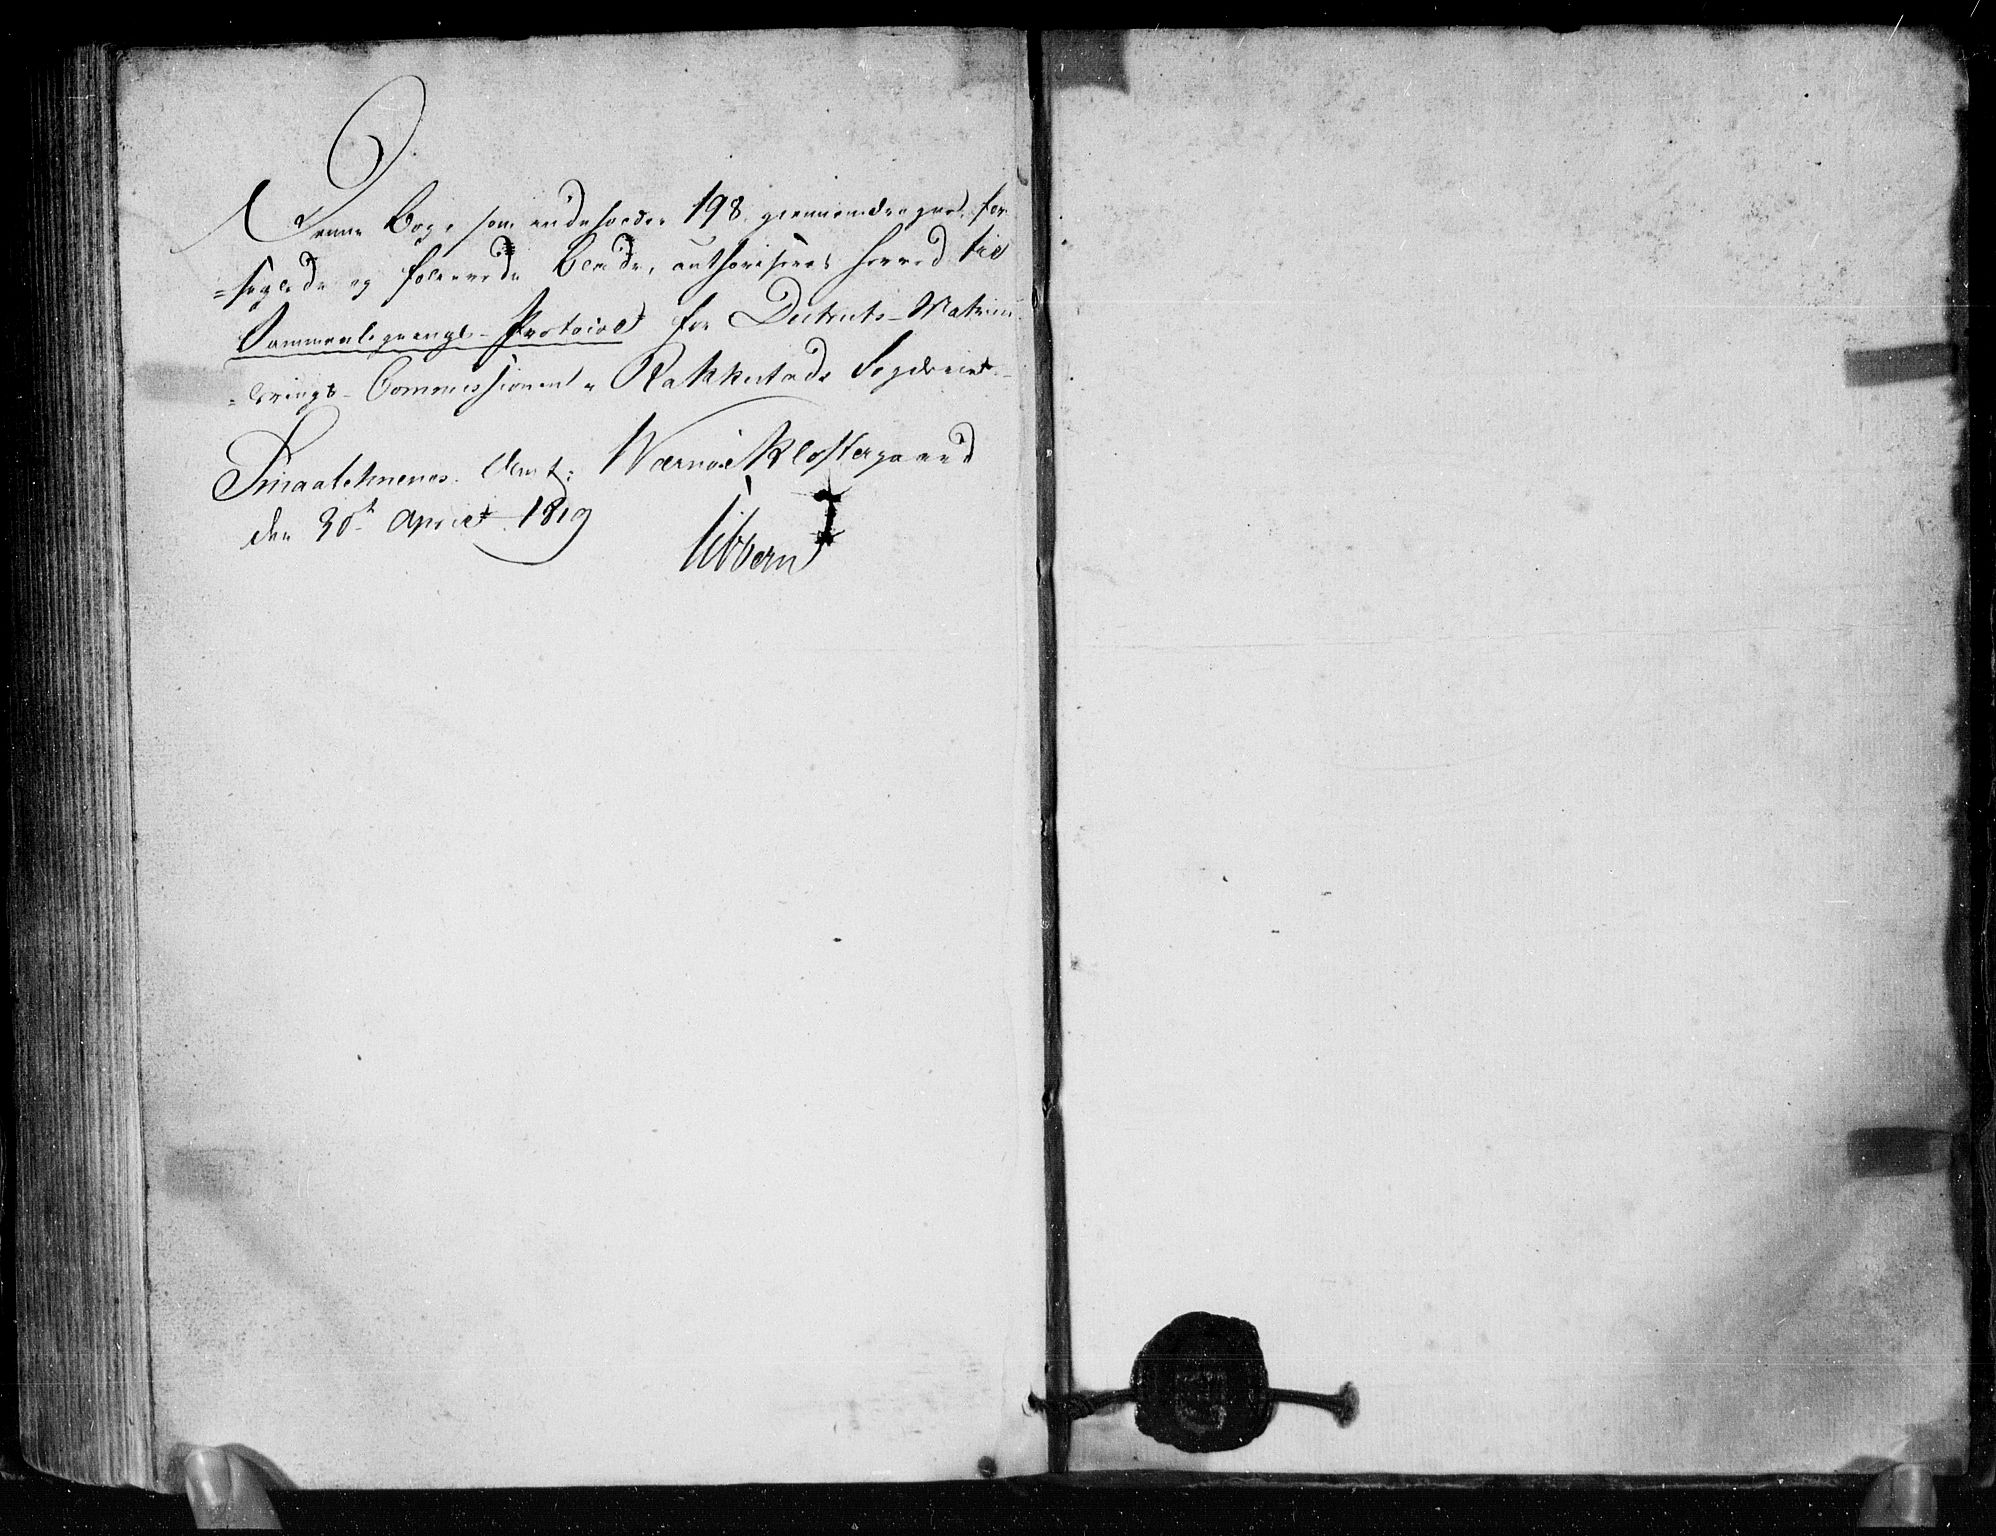 Denne Bog, som indeholder 198 giennemdragne, for-
=seglede og folierede Blade, authoriseres herved til
Sammenlignings-Protocol for Districts-Matricu
=lerings-Commissionen i Rakkestads Fogderie.-
Smaalehnenes Amt: Wærnøe Klostergaard
den 30te April 1819
Sibbern